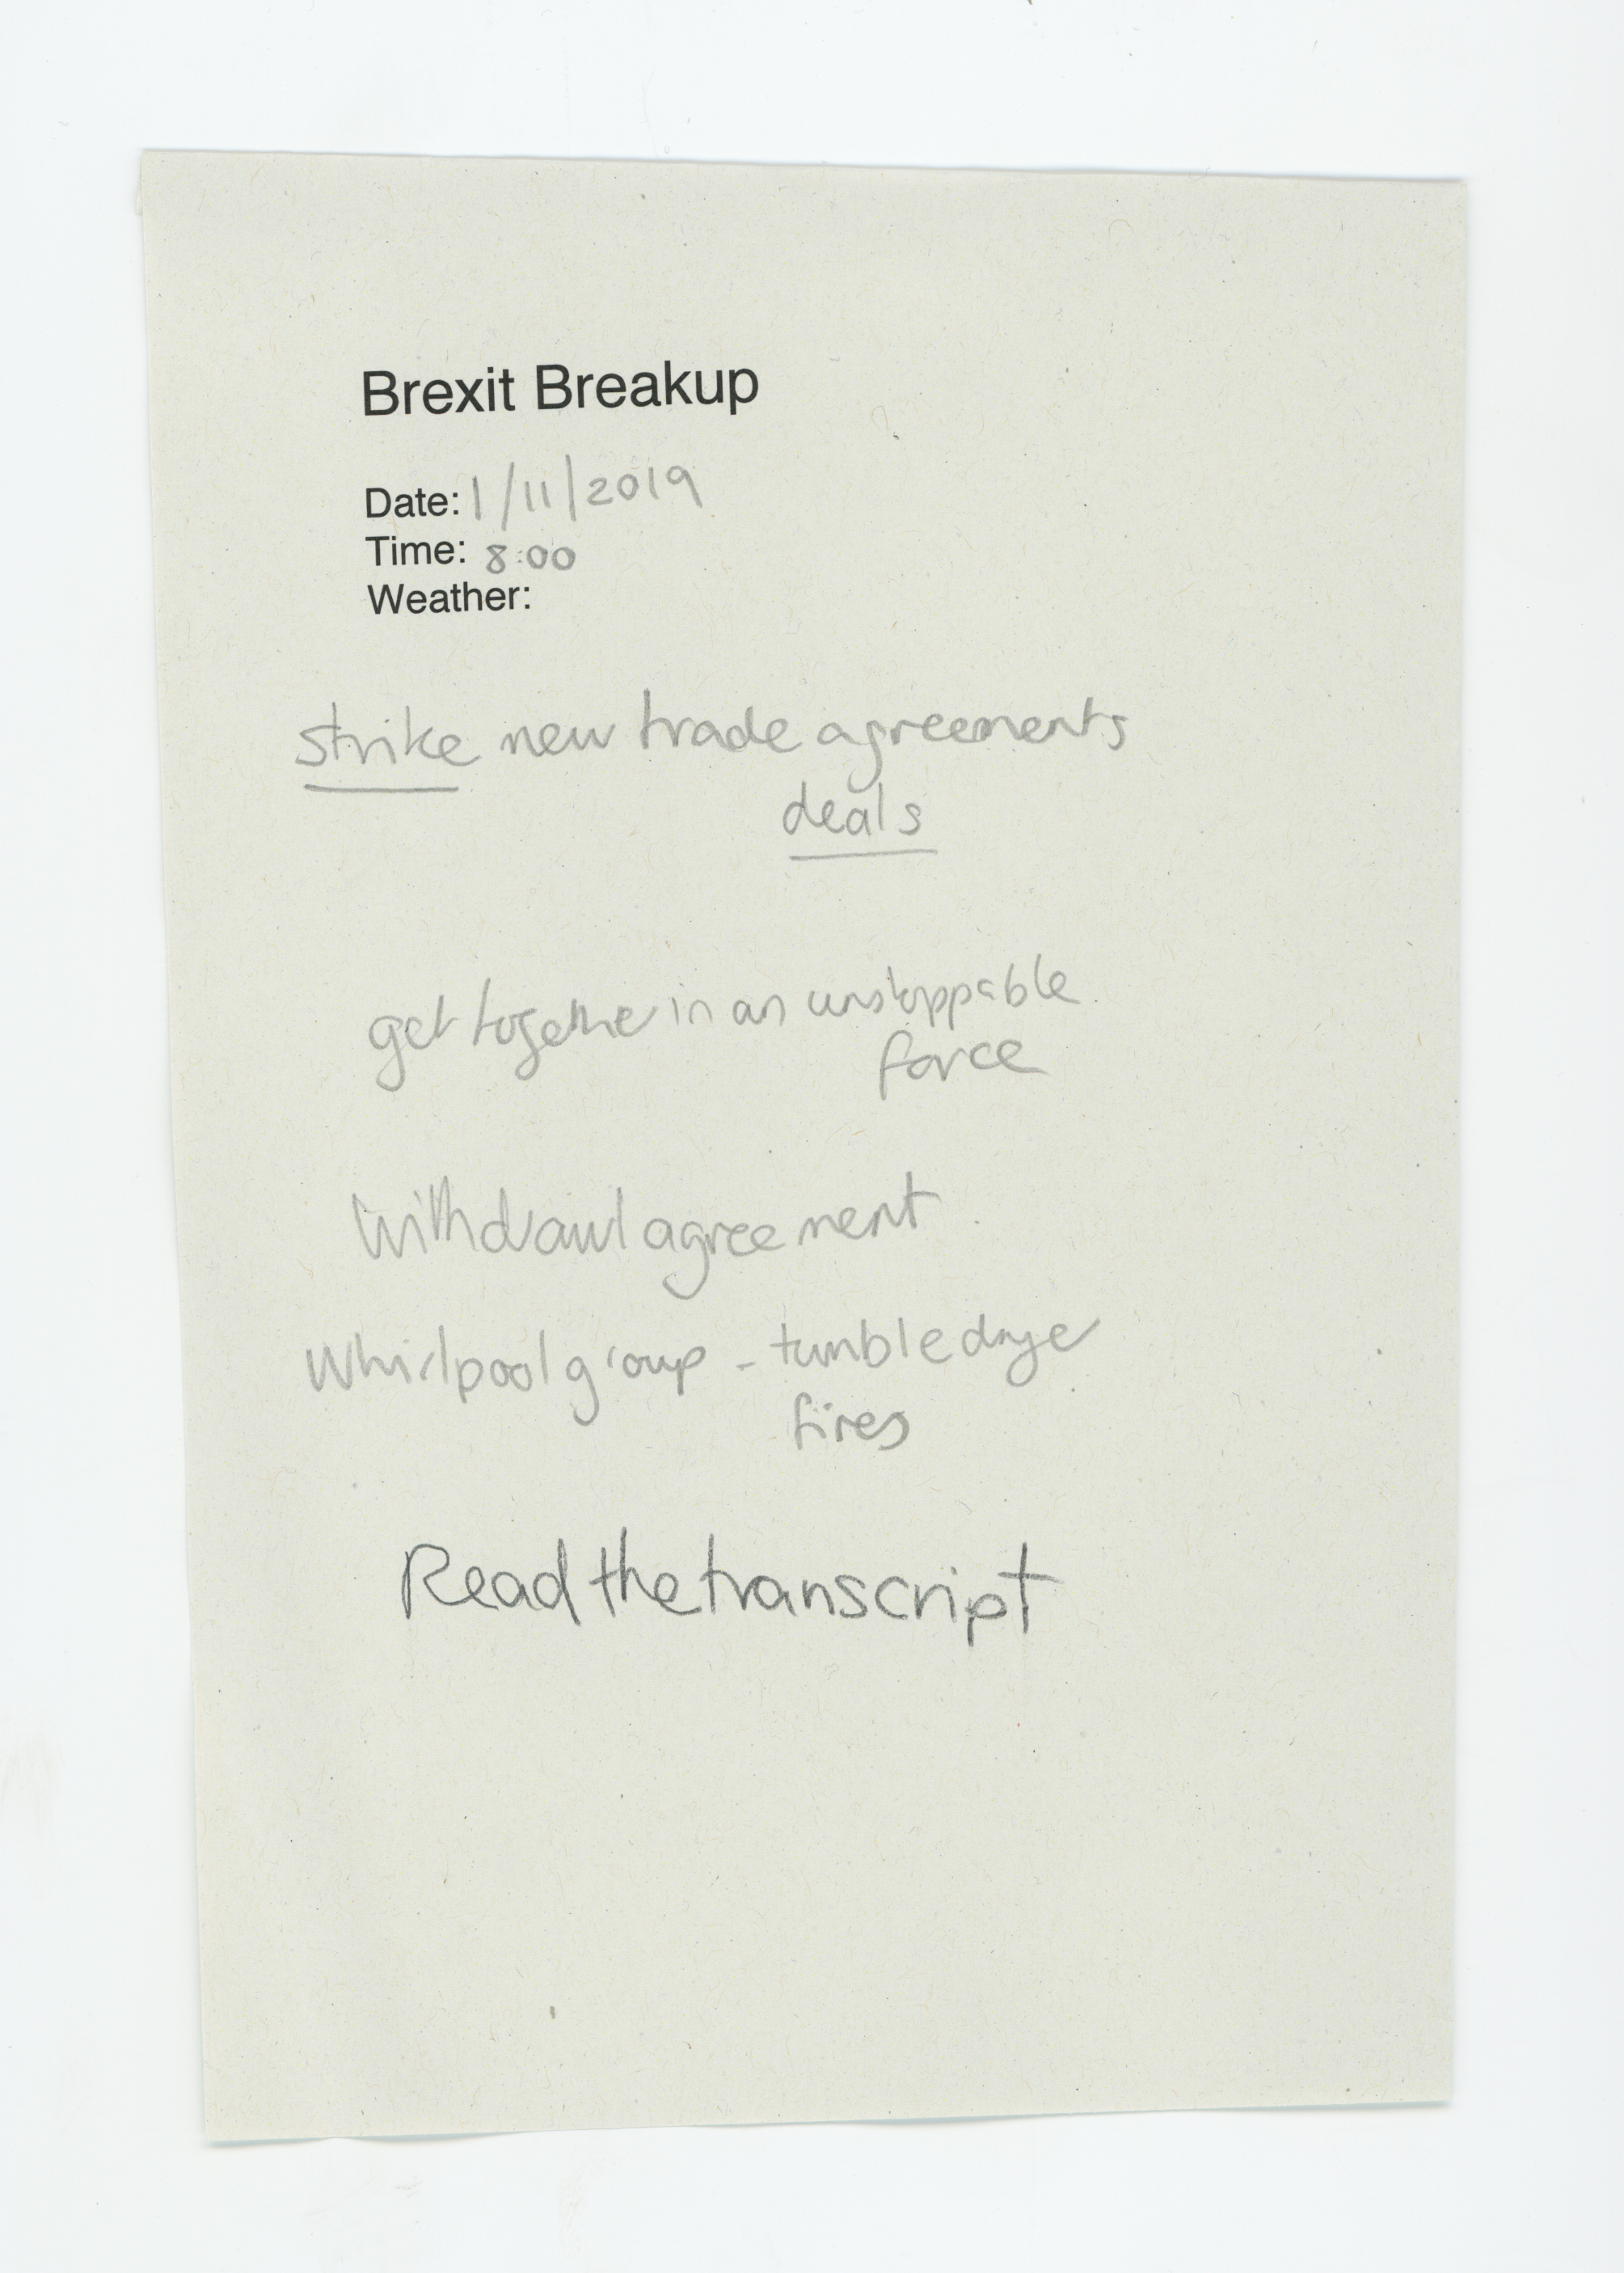 Brexit Breakup
Date: 1/11/2019
Time: 8:00
Weather:
strike new trade agreements
deals
get together in an unstoppable
force
Withdrawl agreement
Whirlpool group - tumble dryer
fires
Read the transcript